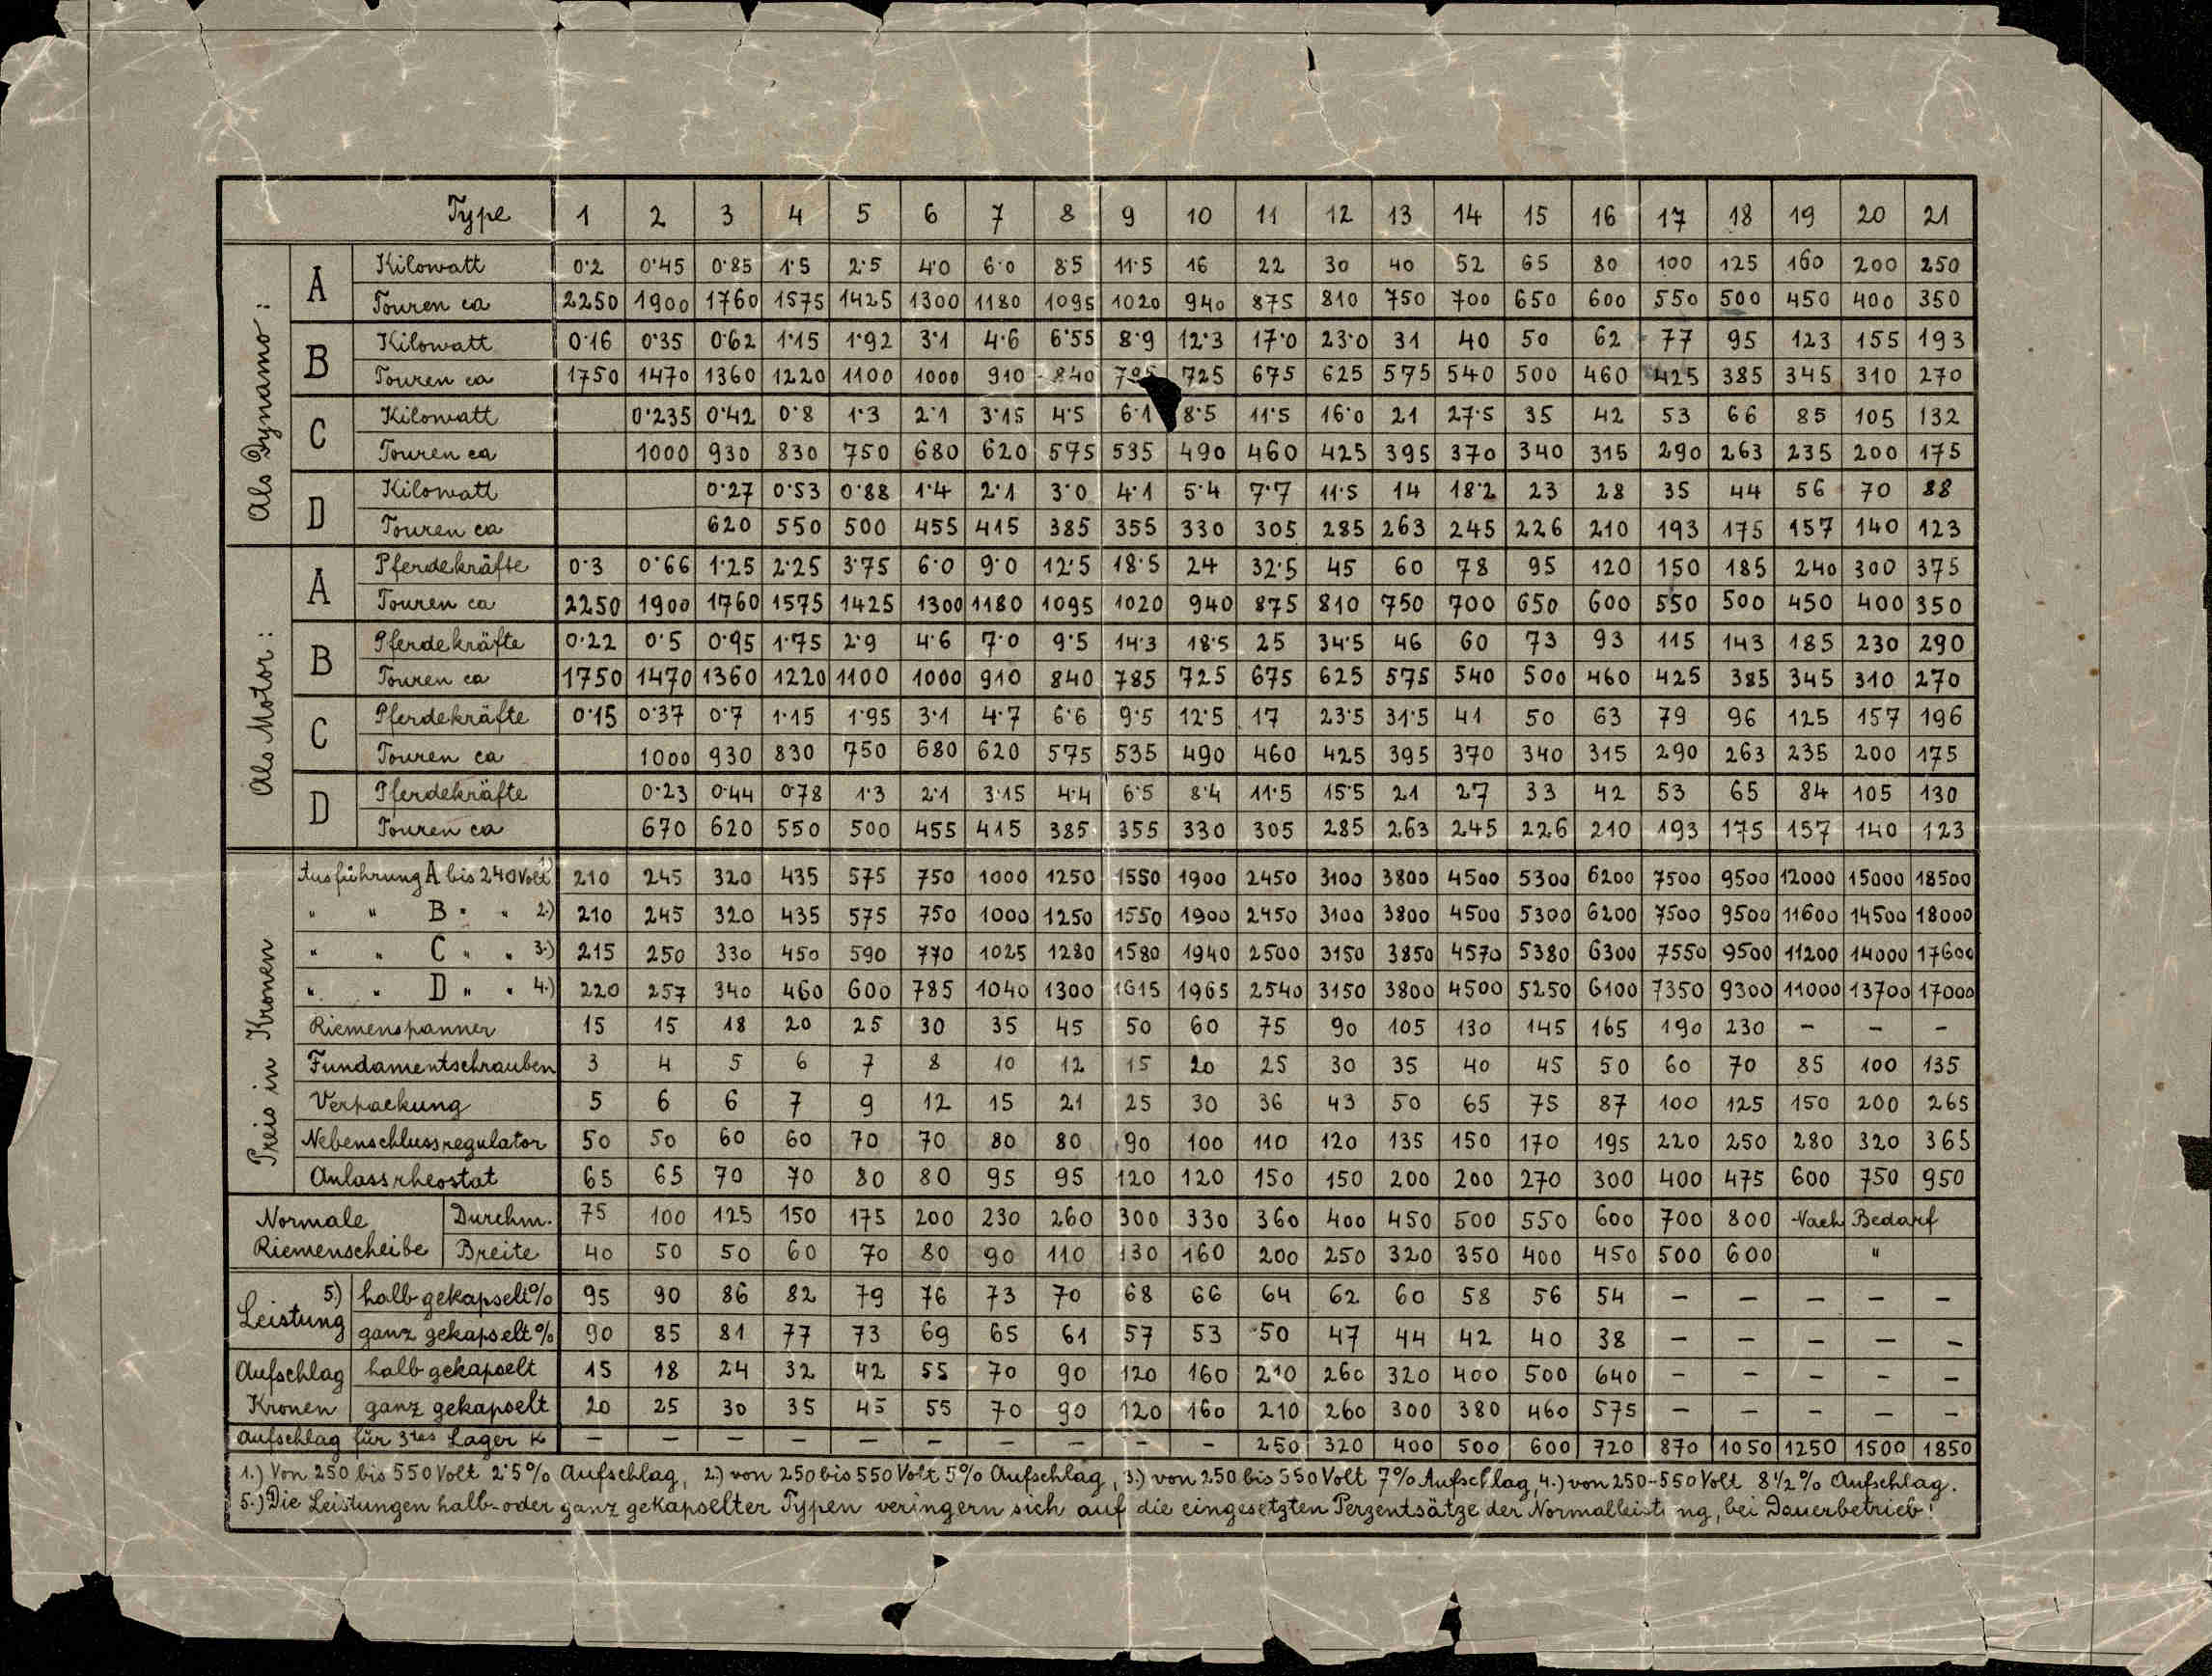 Type 1 2 3 4 5 6 7 8 9 10 11 12 13 14 15 16 17 18 19 20 21
Als Dynamo:
A Kilowatt 0·2 0·45 0·85 1·5 2·5 4·0 6·0 8·5 11·5 16 22 30 40 52 65 80 100 125 160 200 250
Touren ca 2250 1900 1760 1575 1425 1300 1180 1095 1020 940 875 810 750 700 650 600 550 500 450 400 350
B Kilowatt 0·16 0·35 0·62 1·15 1·92 3·1 4·6 6·55 8·9 12·3 17·0 23·0 31 40 50 62 77 95 123 155 193
Touren ca 1750 1470 1360 1220 1100 1000 910 840 725 675 625 575 540 500 460 425 385 345 310 270
C Kilowatt 0·235 0·42 0·8 1·3 2·1 3·15 4·5 6·1 8·5 11·5 16·0 21 27·5 35 42 53 66 85 105 132
Touren ca 1000 930 830 750 680 620 575 535 490 460 425 395 370 340 315 290 263 235 200 175
D Kilowatt 0·27 0·53 0·88 1·4 2·1 3·0 4·1 5·4 7·7 11·5 14 18·2 23 28 35 44 56 70 88
Touren ca 620 550 500 455 415 385 355 330 305 285 263 245 226 210 193 175 157 140 123
Als Motor:
A Pferdekräfte 0·3 0·66 1·25 2·25 3·75 6·0 9·0 12·5 18·5 24 32·5 45 60 78 95 120 150 185 240 300 375
Touren ca 2250 1900 1760 1575 1425 1300 1180 1095 1020 940 875 810 750 700 650 600 550 500 450 400 350
B Pferdekräfte 0·22 0·5 0·95 1·75 2·9 4·6 7·0 9·5 14·3 18·5 25 34·5 46 60 73 93 115 143 185 230 290
Touren ca 1750 1470 1360 1220 1100 1000 910 840 785 725 675 625 575 540 500 460 425 385 345 310 270
C Pferdekräfte 0·15 0·37 0·7 1·15 1·95 3·1 4·7 6·6 9·5 12·5 17 23·5 31·5 41 50 63 79 96 125 157 196
Touren ca 1000 930 830 750 680 620 575 535 490 460 425 395 370 340 315 290 263 235 200 175
D Pferdekräfte 0·23 0·44 0·78 1·3 2·1 3·15 4·4 6·5 8·4 11·5 15·5 21 27 33 42 53 65 84 105 130
Touren ca 670 620 550 500 455 415 385 355 330 305 285 263 245 226 210 193 175 157 140 123
Preis in Kronen
Ausführung A bis 240 Volt 1) 210 245 320 435 575 750 1000 1250 1550 1900 2450 3100 3800 4500 5300 6200 7500 9500 12000 15000 18500
" " B " " 2.) 210 245 320 435 575 750 1000 1250 1550 1900 2450 3100 3800 4500 5300 6200 7500 9500 11600 14500 18000
" " C " " 3.) 215 250 330 450 590 770 1025 1280 1580 1940 2500 3150 3850 4570 5380 6300 7550 9500 11200 14000 17600
" " D " " 4.) 220 257 340 460 600 785 1040 1300 1615 1965 2540 3150 3800 4500 5250 6100 7350 9300 11000 13700 17000
Riemenspanner 15 15 18 20 25 30 35 45 50 60 75 90 105 130 145 165 190 230 – – –
Fundamentschrauben 3 4 5 6 7 8 10 12 15 20 25 30 35 40 45 50 60 70 85 100 135
Verpackung 5 6 6 7 9 12 15 21 25 30 36 43 50 65 75 87 100 125 150 200 265
Nebenschlussregulator 50 50 60 60 70 70 80 80 90 100 110 120 135 150 170 195 220 250 280 320 365
Anlassrheostat 65 65 70 70 80 80 95 95 120 120 150 150 200 200 270 300 400 475 600 750 950
Normale Riemenscheibe
Durchm. 75 100 125 150 175 200 230 260 300 330 360 400 450 500 550 600 700 800 Nach Bedarf
Breite 40 50 50 60 70 80 90 110 130 160 200 250 320 350 400 450 500 600 "
5.) Leistung
halb gekapselt % 95 90 86 82 79 76 73 70 68 66 64 62 60 58 56 54 – – – – –
ganz gekapselt % 90 85 81 77 73 69 65 61 57 53 50 47 44 42 40 38 – – – – –
Aufschlag Kronen
halb gekapselt 15 18 24 32 42 55 70 90 120 160 210 260 320 400 500 640 – – – – –
ganz gekapselt 20 25 30 35 45 55 70 90 120 160 210 260 300 380 460 575 – – – – –
Aufschlag für 3tes Lager K – – – – – – – – – – 250 320 400 500 600 720 870 1050 1250 1500 1850
1.) Von 250 bis 550 Volt 2·5% Aufschlag, 2.) von 250 bis 550 Volt 5% Aufschlag, 3.) von 250 bis 550 Volt 7% Aufschlag, 4.) von 250–550 Volt 8½% Aufschlag.
5.) Die Leistungen halb- oder ganz gekapselter Typen veringern sich auf die eingesetzten Perzentsätze der Normalleist ng, bei Dauerbetrieb!